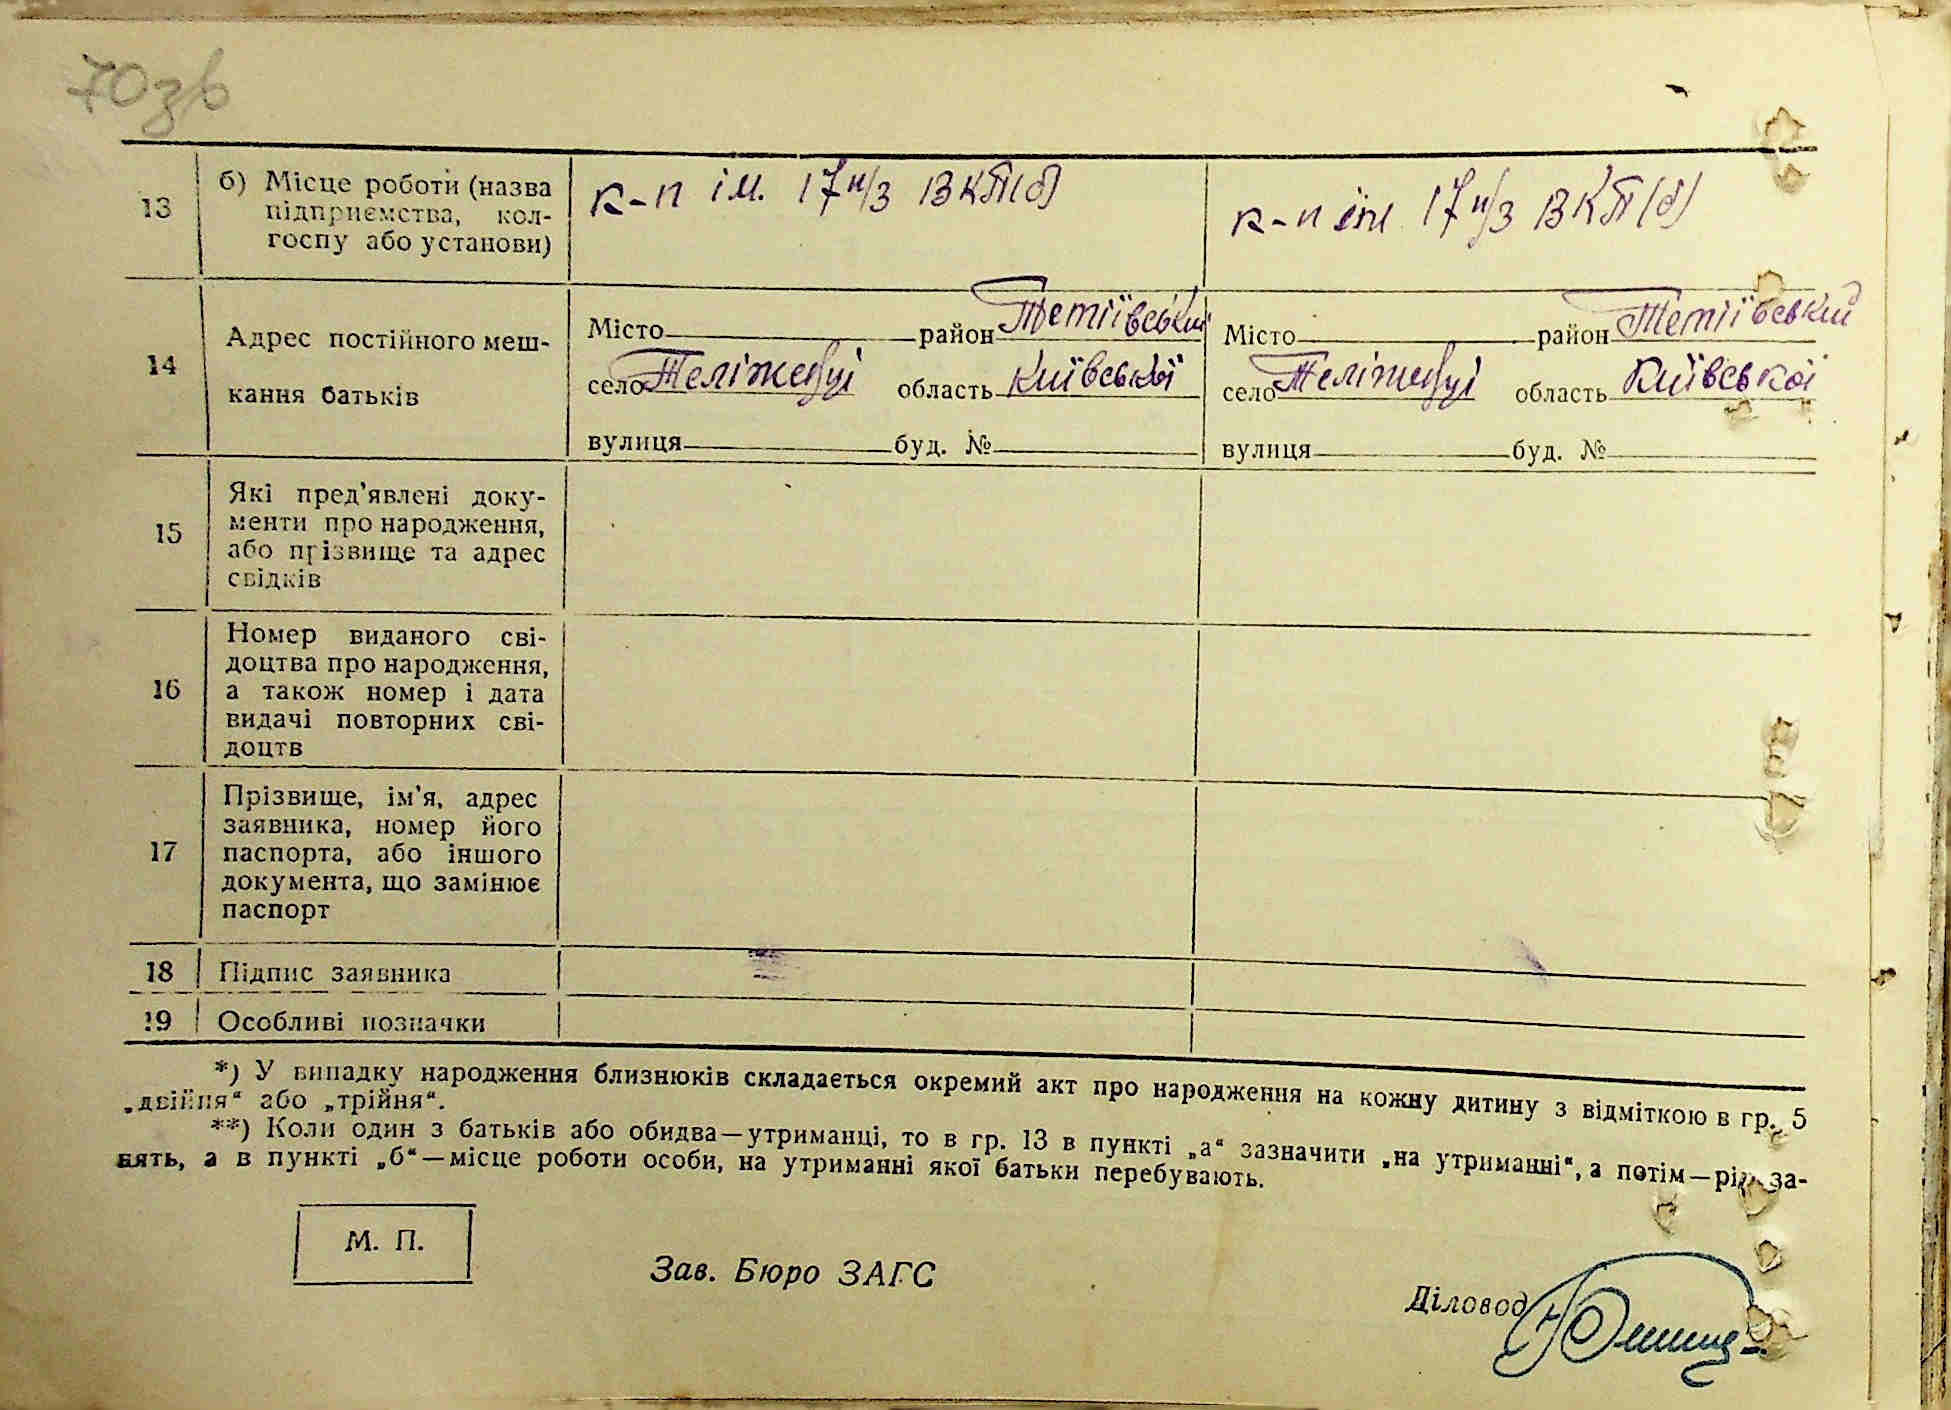 70зв
13 б) Місце роботи (назва підприємства, колгоспу або установи) к-п ім. 17 п/з ВКП(б) к-п ім 17 п/з ВКП(б)
14 Адрес постійного мешкання батьків
Місто район Тетіївський Місто район Тетіївський
село Теліженці область Київської село Теліженці область Київської
вулиця буд. № вулиця буд. №
15 Які пред'явлені документи про народження, або прізвище та адрес свідків
16 Номер виданого свідоцтва про народження, а також номер і дата видачі повторних свідоцтв
17 Прізвище, ім'я, адрес заявника, номер його паспорта, або іншого документа, що замінює паспорт
18 Підпис заявника
19 Особливі позначки
*) У випадку народження близнюків складається окремий акт про народження на кожну дитину з відміткою в гр. 5
„двійня“ або „трійня“.
**) Коли один з батьків або обидва—утриманці, то в гр. 13 в пункті „а“ зазначити „на утриманні“, а потім—рід за-
нять, а в пункті „б“—місце роботи особи, на утриманні якої батьки перебувають.
М. П.
Зав. Бюро ЗАГС
Діловод